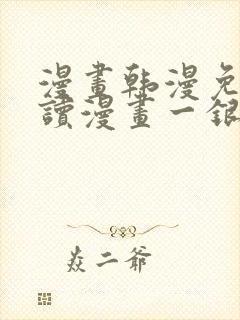 漫畫韩漫免
讀漫畫一銀
焱二爺